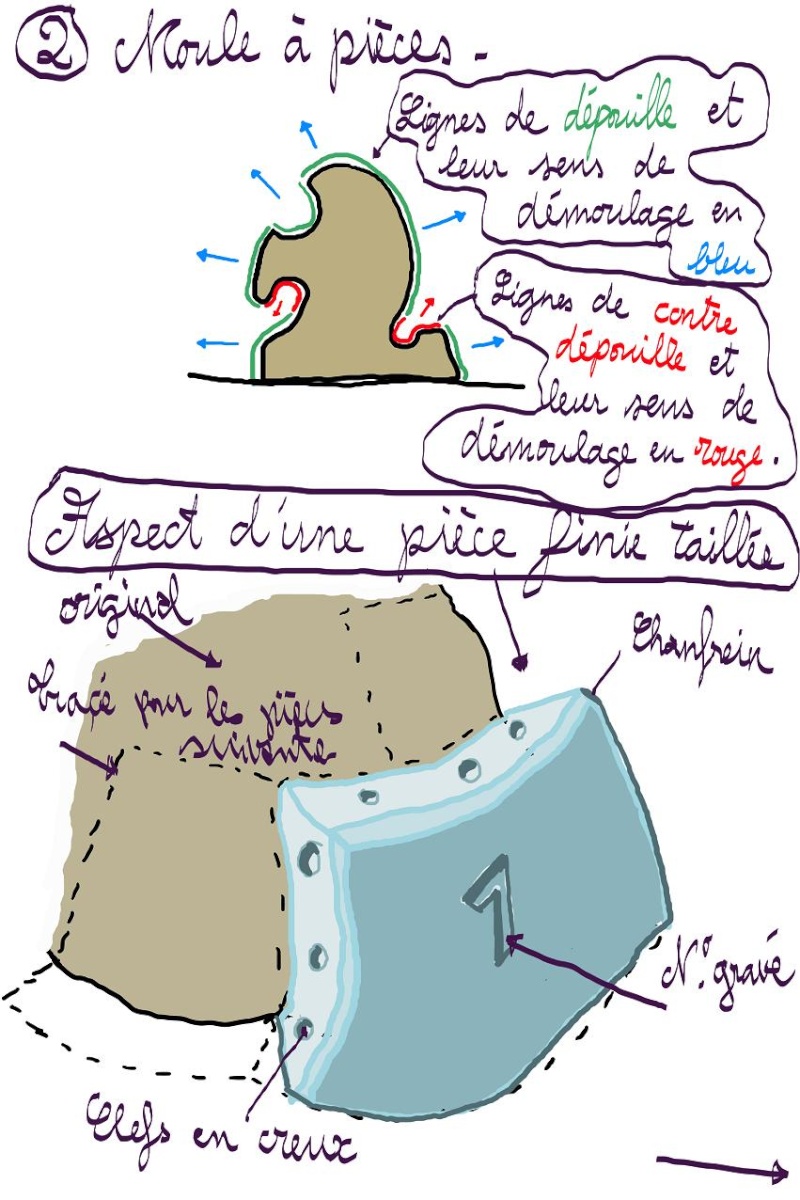 2 Moule à pièces -
Lignes de dépouille et
leur sens de
démoulage en
bleu
Lignes de contre
dépouille et
leur sens de
démoulage en rouge.
Aspect d'une pièce finie taillée
original
Chanfrein
tracé pour les pièces
suivante
1
N.° gravé
Clefs en creux